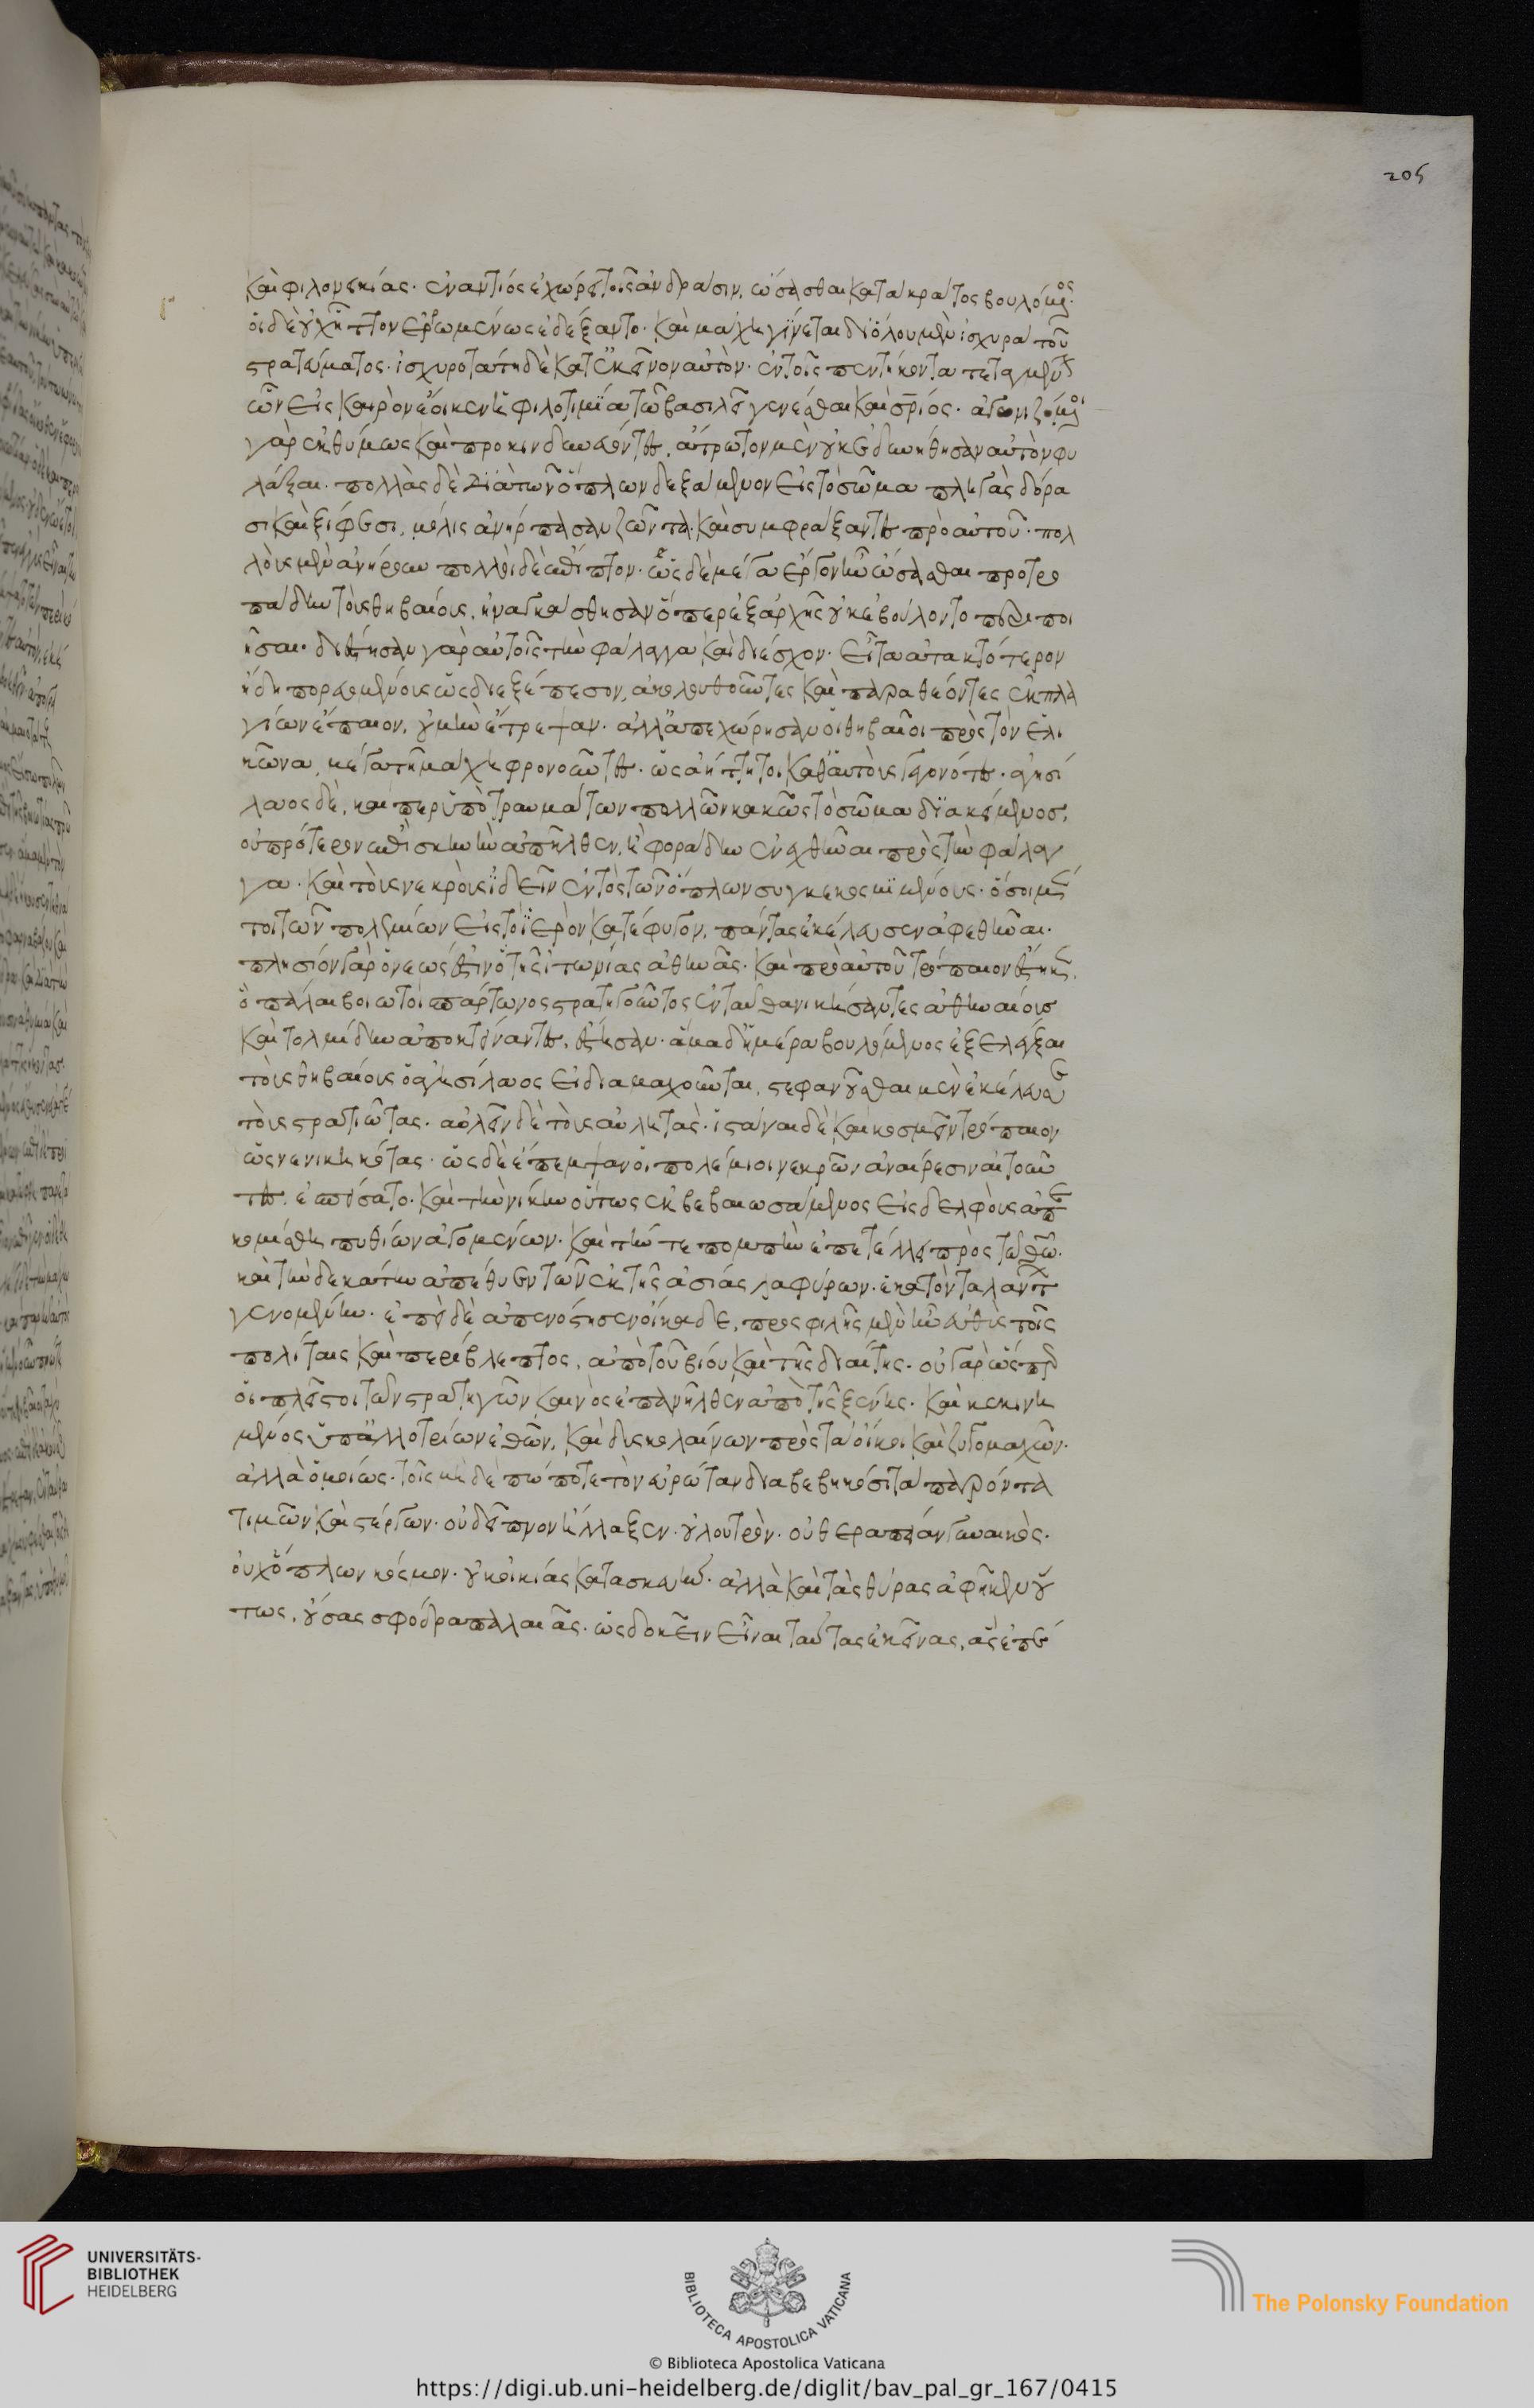 205
καὶ φιλονεικίας. ἐναντίος ἐχώρει τοῖς ἀνδράσιν, ὤσασθαι κατακράτος βουλόμενος.
οἱ δὲ οὐχ ἧττον ἐρρωμένως ἐδέξαντο. καὶ μάχη γίνεται δι' ὅλου μὲν ἰσχυρὰ τοῦ
στρατεύματος. ἰσχυροτάτη δὲ κατ' ἐκεῖνον αὐτὸν. ἐν τοῖς πεντήκοντα τεταγμένον
ὧν εἰς καιρὸν ἔοικεν ἡ φιλοτιμία τῶ βασιλεῖ γενέσθαι καὶ σωτήριος. ἀγωνιζόμενοι
γὰρ ἐκθύμως καὶ προκινδυνεύοντες, ἄτρωτον μὲν οὐκ ἐδυνήθησαν αὐτὸν φυ
λάξαι. πολλὰς δὲ διὰ τῶν ὅπλων δεξάμενον εἰς τὸ σῶμα πληγὰς δόρα
σι καὶ ξίφεσι, μόλις ἀνήρπασαν ζῶντα. καὶ συμφράξαντες πρὸ αὐτοῦ. πολ
λοὺς μὲν ἀνήρουν πολλοὶ δὲ ἔπιπτον. ὡς δὲ μέγα ἔργον ἦν ὤσασθαι προτρο
πάδην τοὺς θηβαίους, ἠναγκάσθησαν ὅπερ ἐξαρχῆς οὐκ ἐβούλοντο ποι
ῆσαι. διέστησαν γὰρ αὐτοῖς τὴν φάλαγγα καὶ διέσχον. εἶτα ἀτακτότερον
ἤδη πορευομένους ὡς διεξέπεσον, ἀκολουθοῦντες καὶ παραθέοντες ἐκ πλα
γίων ἔπαιον, οὐ μὴν ἔτρεψαν. ἀλλ' ἀπεχώρησαν οἱ θηβαῖοι πρὸς τὸν ἑλι
κῶνα, μέγα τῆ μάχη φρονοῦντες. ὡς ἀήττητοι καθ' αὑτοὺς γεγονότες. ἀγησί
λαος δὲ, καίπερ ὑπὸ τραυμάτων πολλῶν κακῶς τὸ σῶμα διακείμενος,
οὐ πρότερον ἐπὶ σκηνὴν ἀπῆλθεν, ἢ φοράδην ἐνεχθῆναι πρὸς τὴν φάλαγ
γα. καὶ τοὺς νεκροὺς ἰδεῖν ἐντὸς τῶν ὅπλων συγκεκομισμένους. ὅσοι μέν
τοι τῶν πολεμίων εἰς τὸ ἱερὸν κατέφυγον, πάντας ἐκέλευσεν ἀφεθῆναι.
πλησίον γὰρ ὁ νεώς ἐστιν ὁ τῆς ἰτωνίας ἀθηνᾶς. καὶ πρὸ αὐτοῦ τρόπαιον ἕστηκεν,
ὃ πάλαι βοιωτοὶ σπάρτωνος στρατηγοῦντος ἐνταῦθα νικήσαντες ἀθηναίους
καὶ τολμίδην ἀποκτείναντες, ἔστησαν. ἅμα δ' ἡμέρα βουλόμενος ἐξελέγξαι
τοὺς θηβαίους ὁ ἀγησίλαος εἰ διαμαχοῦνται, στεφανοῦσθαι μὲν ἐκέλευσε
τοὺς στρατιώτας. αὐλεῖν δὲ τοὺς αὐλητὰς. ἱστάναι δὲ καὶ κοσμεῖν τρόπαιον
ὡς νενικηκότας. ὡς δὲ ἔπεμψαν οἱ πολέμιοι νεκρῶν ἀναίρεσιν αἰτοῦν
τες, ἐσπείσατο. καὶ τὴν νίκην οὕτως ἐκβεβαιωσάμενος εἰς δελφοὺς ἀπε
κομίσθη πυθίων ἀγομένων. καὶ τήν τε πομπὴν ἐπετέλει πρὸς τῶ θεῶ.
καὶ τὴν δεκάτην ἀπέθυεν τῶν ἐκ τῆς ἀσίας λαφύρων. ἑκατὸν ταλάντων
γενομένην. ἐπεὶ δὲ ἀπενόστησεν οἴκαδε, προσφιλὴς μὲν ἦν εὐθὺς τοῖς
πολίταις καὶ περίβλεπτος, ἀπὸ τοῦ βίου καὶ τῆς διαίτης. οὐ γὰρ ὥσπερ
οἱ πλεῖστοι τῶν στρατηγῶν καινὸς ἐπανῆλθεν ἀπὸ τῆς ξένης. καὶ κεκινη
μένος ὑπ' ἀλλοτρίων ἐθῶν, καὶ δυσκολαίνων πρὸς τὰ οἴκοι καὶ ζυγομαχῶν.
ἀλλὰ ὁμοίως. τοῖς μηδὲ πώποτε τὸν εὐρώταν διαβεβηκόσι τὰ παρόντα
τιμῶν καὶ στέργων. οὐ δεῖπνον ἤλλαξεν. οὐ λουτρὸν. οὐ θεραπείαν γυναικός.
οὐχ ὅπλων κόσμον. οὐκ οἰκίας κατασκευήν. ἀλλὰ καὶ τὰς θύρας ἀφῆκεν οὕ
τως, οὔσας σφόδρα παλαιὰς. ὡς δοκεῖν εἶναι ταύτας ἐκείνας, ἃς ἐπέ
UNIVERSITÄTS-
BIBLIOTHEK
HEIDELBERG
BIBLIOTECA APOSTOLICA VATICANA
The Polonsky Foundation
© Biblioteca Apostolica Vaticana
https://digi.ub.uni-heidelberg.de/diglit/bav_pal_gr_167/0415